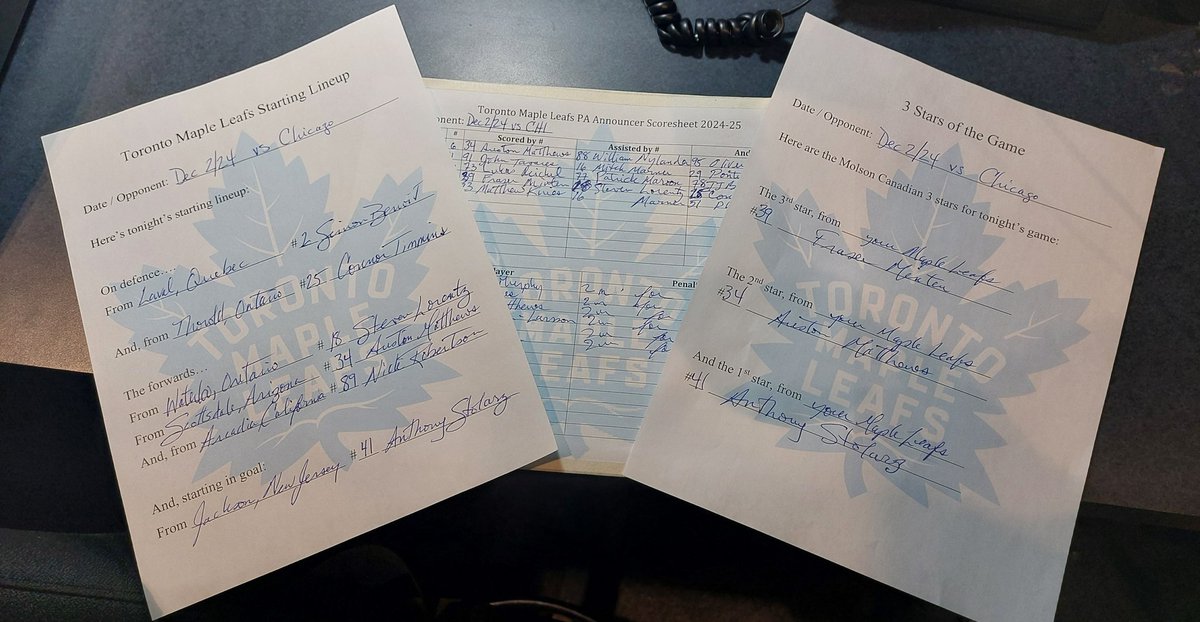 Toronto Maple Leafs Starting Lineup
Date / Opponent: Dec 2/24 vs Chicago
Here's tonight's starting lineup:
On defence....
From Laval, Quebec #2 Simon Benoit
And, from Thorold Ontario #25 Connor Timmins
The forwards...
From Waterloo, Ontario #18 Steven Lorentz
From Scottsdale, Arizona #34 Auston Matthews
And, from Arcadia California #89 Nick Robertson
And, starting in goal:
From Jackson, New Jersey #41 Anthony Stolarz
TORONTO
MAPLE
Toronto Maple Leafs PA Announcer Scoresheet 2024-25
onent: Dec 2/24 vs CHI
# Scored by # Assisted by # And
34 Auston Matthews 88 William Nylander 95 Oliver
91 John Tavares 16 Mitch Marner 29 Pointe
Lukas Reichel 77 Patrick Maroon
39 Fraser Minten Steven Lorentz
23 Matthew Knies 16 Marner 51
layer Penal
Murphy 2 m for
2 m for
thews 2 m for
Larsson 2 m for
2 m fo
LEAFS
3 Stars of the Game
Date / Opponent: Dec 2/24 vs Chicago
Here are the Molson Canadian 3 stars for tonight's game:
The 3rd star, from your Maple Leafs
#39 Fraser Minten
The 2nd star, from your Maple Leafs
#34 Auston Matthews
And the 1st star, from your Maple Leafs
#41 Anthony Stolarz
TORONTO
MAPLE
LEAFS